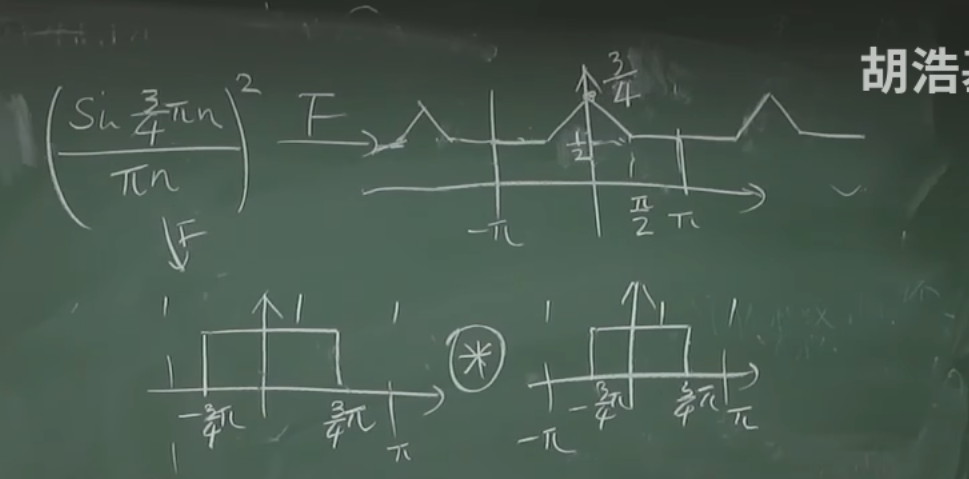 胡浩
(Sin 3/4 πn / πn)² F
3/4
1/2
-π π/2 π
F
1 1 1 1 1 1
-3/4π 3/4π π ⊛ -π -3/4π 3/4π π